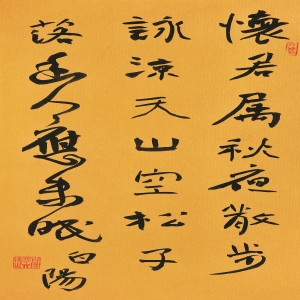 懷君屬秋夜散步
詠涼天山空松子
落幽人應未眠
白陽